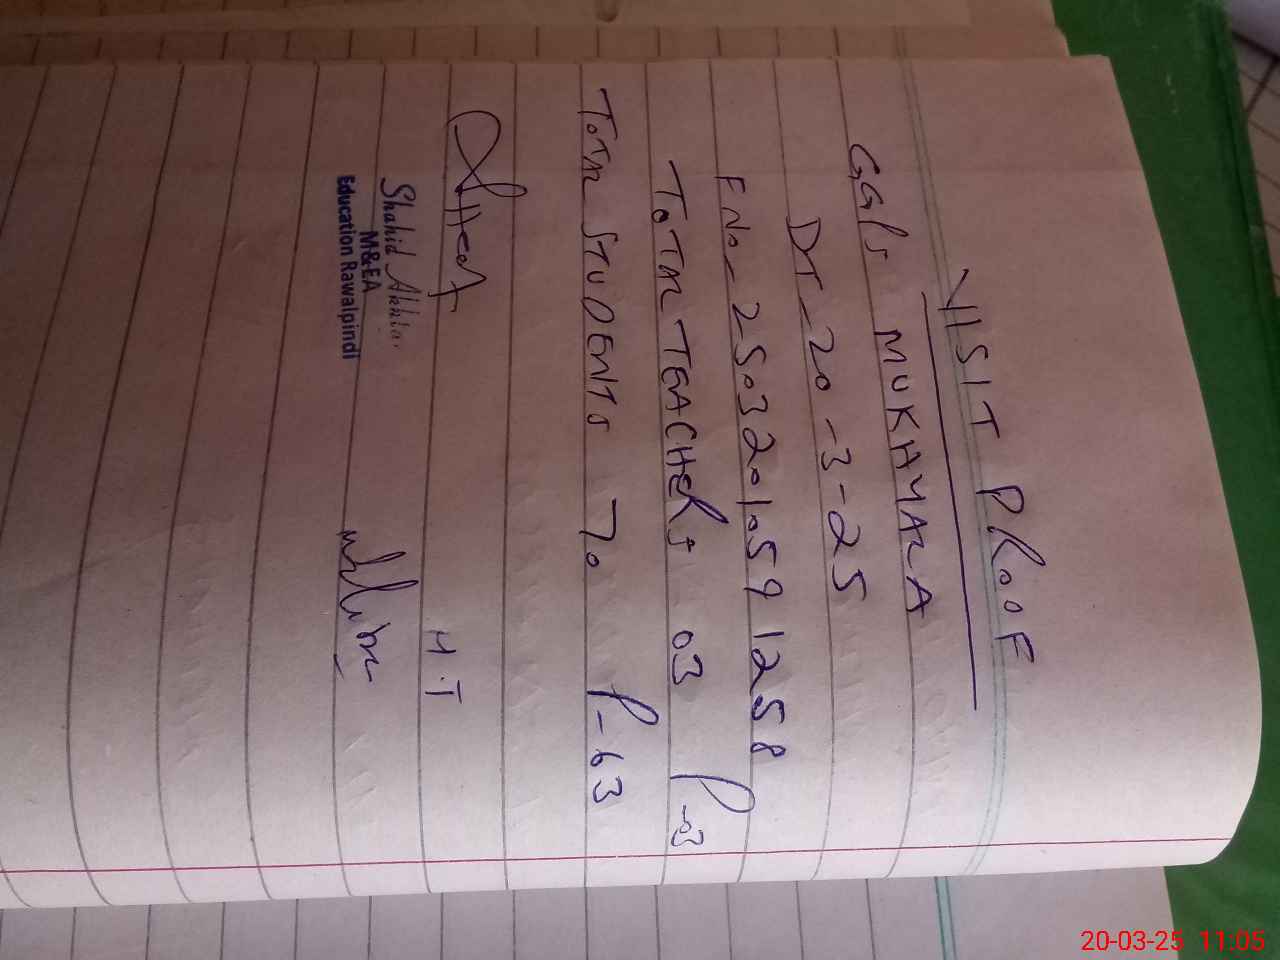 VISIT PROOF
GGPS MUKHYALA
DT - 20 - 3 - 25
F No - 2503201059 1258
TOTAL TEACHERS 03 P-03
TOTAL STUDENTS 70 P-63
H.T
Shahid Akhtar
M&EA
Education Rawalpindi
20-03-25 11:05